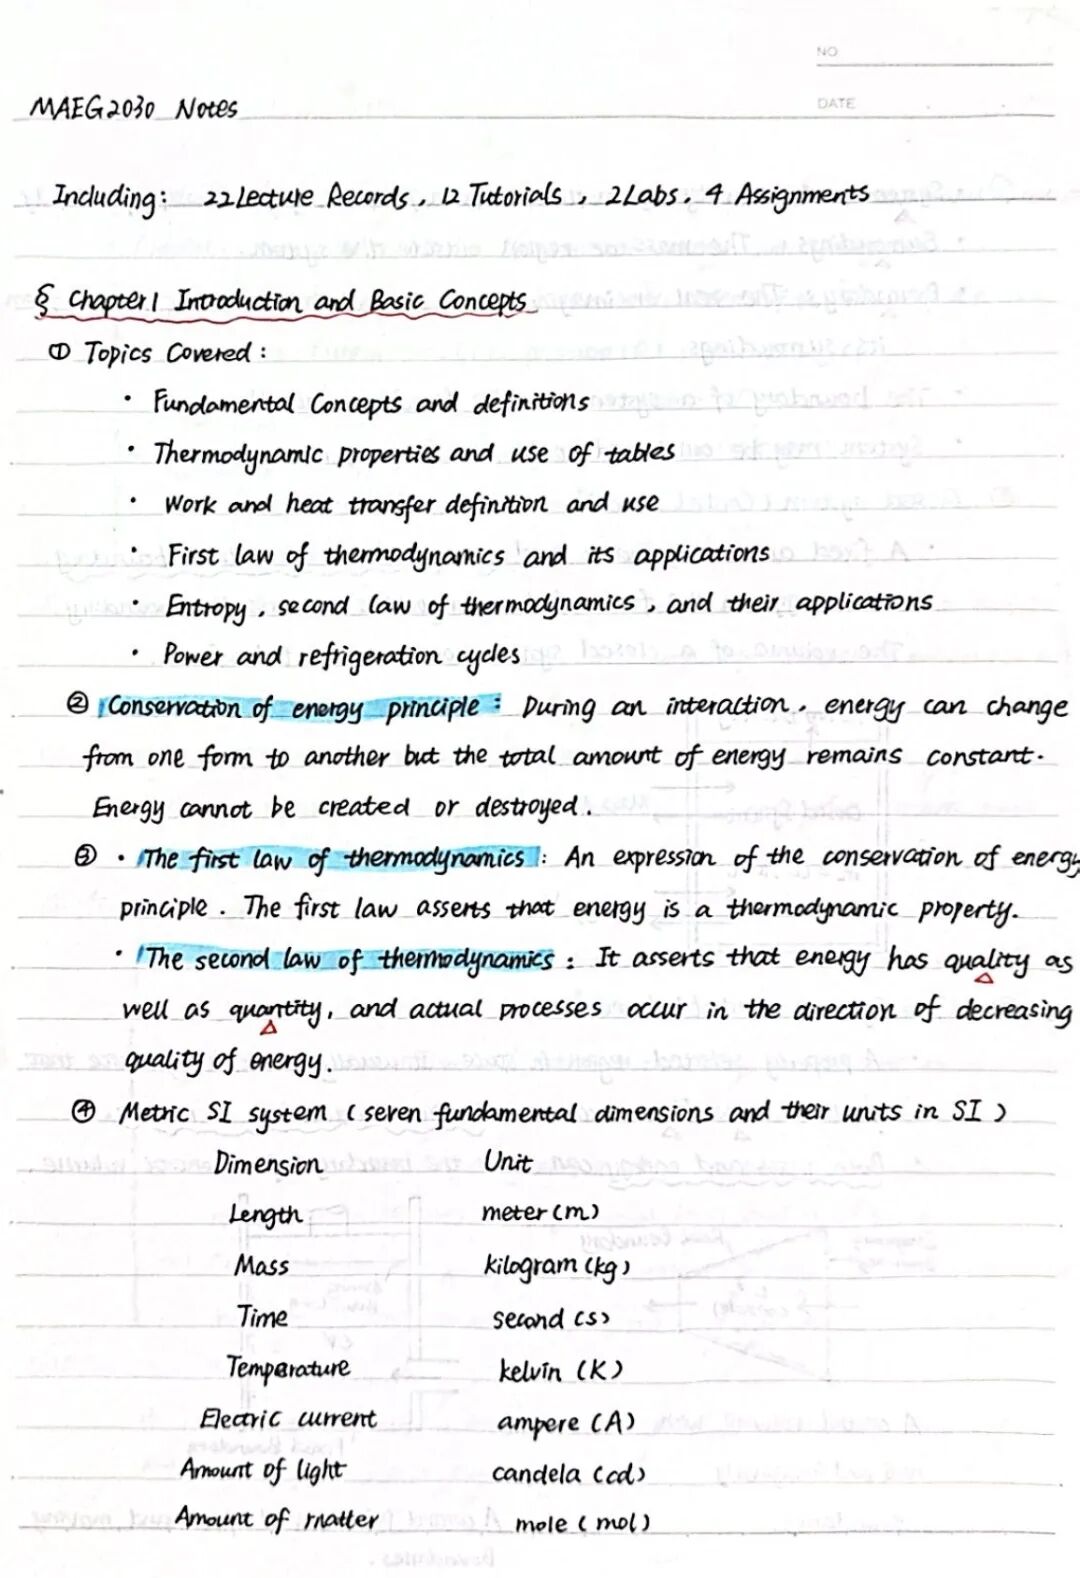 NO
DATE
MAEG2030 Notes
Including: 22 Lecture Records, 12 Tutorials, 2 Labs, 4 Assignments
§ Chapter 1 Introduction and Basic Concepts
① Topics Covered:
· Fundamental Concepts and definitions
· Thermodynamic properties and use of tables
· Work and heat transfer definition and use
· First law of thermodynamics and its applications
· Entropy, second law of thermodynamics, and their applications
· Power and refrigeration cycles
② Conservation of energy principle: During an interaction, energy can change
from one form to another but the total amount of energy remains constant.
Energy cannot be created or destroyed.
③ · The first law of thermodynamics: An expression of the conservation of energy
principle. The first law asserts that energy is a thermodynamic property.
· The second law of thermodynamics: It asserts that energy has quality as
well as quantity, and actual processes occur in the direction of decreasing
quality of energy.
④ Metric SI system (seven fundamental dimensions and their units in SI)
Dimension Unit
Length meter (m)
Mass kilogram (kg)
Time second (s)
Temperature kelvin (K)
Electric current ampere (A)
Amount of light candela (cd)
Amount of matter mole (mol)